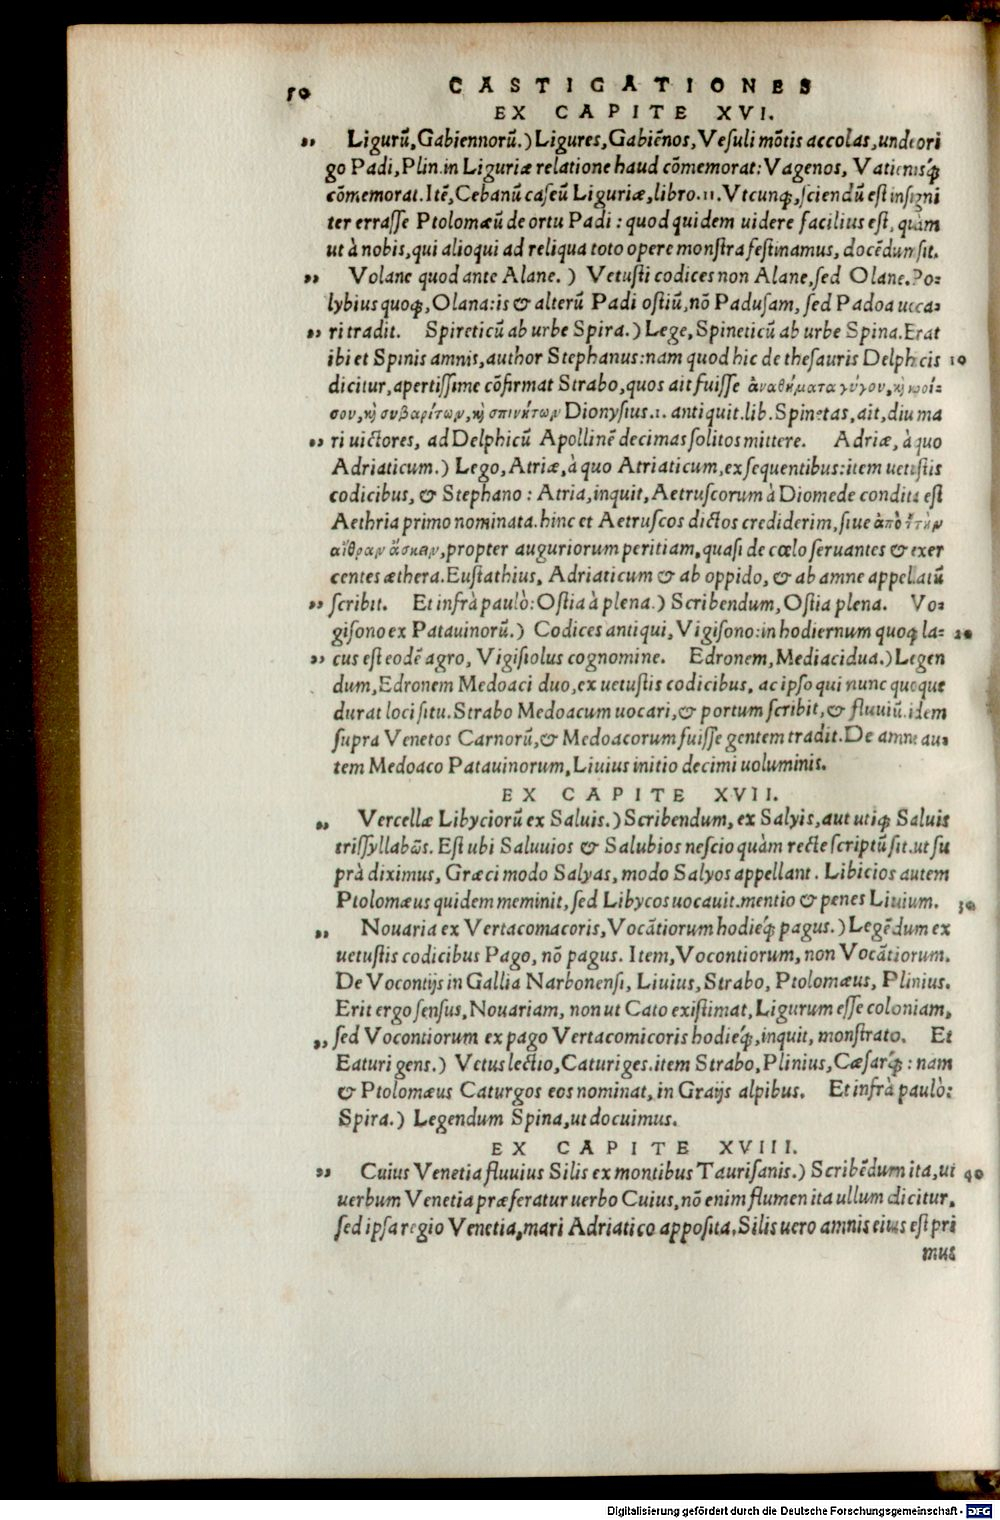 50 CASTIGATIONES
EX CAPITE XVI.
„ Ligurũ, Gabiennorũ.) Ligures, Gabiẽnos, Vesuli mõtis accolas, unde ori
go Padi, Plin. in Liguriæ relatione haud cõmemorat: Vagenos, Vatiensq́;
cõmemorat. Itẽ, Cebanũ caseũ Liguriæ, libro. 11. Vtcunq;, sciendũ est insigni
ter errasse Ptolomæũ de ortu Padi: quod quidem uidere facilius est, quàm
ut à nobis, qui alioqui ad reliqua toto opere monstra festinamus, docẽdum sit.
„ Volane quod ante Alane.) Vetusti codices non Alane, sed Olane. Po=
lybius quoq;, Olana: is & alterũ Padi ostiũ, nõ Padusam, sed Padoa uoca=
„ ri tradit. Spireticũ ab urbe Spira.) Lege, Spineticũ ab urbe Spina. Erat
ibi et Spinis amnis, author Stephanus: nam quod hic de thesauris Delphicis 10
dicitur, apertissime cõfirmat Strabo, quos ait fuisse ἀναθήματα γύγου, κỳ κροί=
σου, κỳ συβαρίτων, κỳ σπινήτων Dionysius. 1. antiquit. lib. Spinetas, ait, diu ma
„ ri uictores, ad Delphicũ Apollinẽ decimas solitos mittere. Adriæ, à quo
Adriaticum.) Lego, Atriæ, à quo Atriaticum, ex sequentibus: item uetustis
codicibus, & Stephano: Atria, inquit, Aetruscorum à Diomede condita est
Aethria primo nominata. hinc et Aetruscos dictos crediderim, siue ἀπὸ τ̃ τὴν
αἴθραν ἄσκειν, propter auguriorum peritiam, quasi de cœlo seruantes & exer
centes æthera. Eustathius, Adriaticum & ab oppido, & ab amne appellatũ
„ scribit. Et infrà paulò: Ostia à plena.) Scribendum, Ostia plena. Vo=
gisono ex Patauinorũ.) Codices antiqui, Vigisono: in hodiernum quoq; la= 20
„ cus est eodẽ agro, Vigisiolus cognomine. Edronem, Mediacidua.) Legen
dum, Edronem Medoaci duo, ex uetustis codicibus, ac ipso qui nunc quoque
durat loci situ. Strabo Medoacum uocari, & portum scribit, & fluuiũ. idem
supra Venetos Carnorũ, & Medoacorum fuisse gentem tradit. De amne au=
tem Medoaco Patauinorum, Liuius initio decimi uoluminis.
EX CAPITE XVII.
„ Vercellæ Libyciorũ ex Saluis.) Scribendum, ex Salyis, aut utiq; Saluis
trissyllabῶs. Est ubi Saluuios & Salubios nescio quàm recte scriptũ sit. ut su
prà diximus, Græci modo Salyas, modo Salyos appellant. Libicios autem
Ptolomæus quidem meminit, sed Libycos uocauit. mentio & penes Liuium. 30
„ Nouaria ex Vertacomacoris, Vocãtiorum hodieq́; pagus.) Legẽdum ex
uetustis codicibus Pago, nõ pagus. Item, Vocontiorum, non Vocãtiorum.
De Vocontijs in Gallia Narbonensi, Liuius, Strabo, Ptolomæus, Plinius.
Erit ergo sensus, Nouariam, non ut Cato existimat, Ligurum esse coloniam,
„ sed Vocontiorum ex pago Vertacomicoris hodieq́;, inquit, monstrato. Et
Eaturi gens.) Vetus lectio, Caturiges. item Strabo, Plinius, Cæsarq́;: nam
& Ptolomæus Caturgos eos nominat, in Graijs alpibus. Et infrà paulò:
Spira.) Legendum Spina, ut docuimus.
EX CAPITE XVIII.
„ Cuius Venetia fluuius Silis ex montibus Taurisanis.) Scribẽdum ita, ut 40
uerbum Venetia præferatur uerbo Cuius, nõ enim flumen ita ullum dicitur,
sed ipsa regio Venetia, mari Adriatico apposita, Silis uero amnis eius est pri
mus
Digitalisierung gefördert durch die Deutsche Forschungsgemeinschaft - DFG